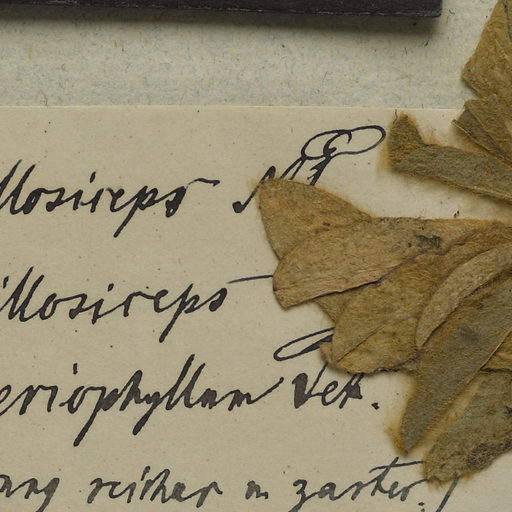 llosiceps NP
illosiceps
eriophyllum Vet.
ung reicher u zarter.